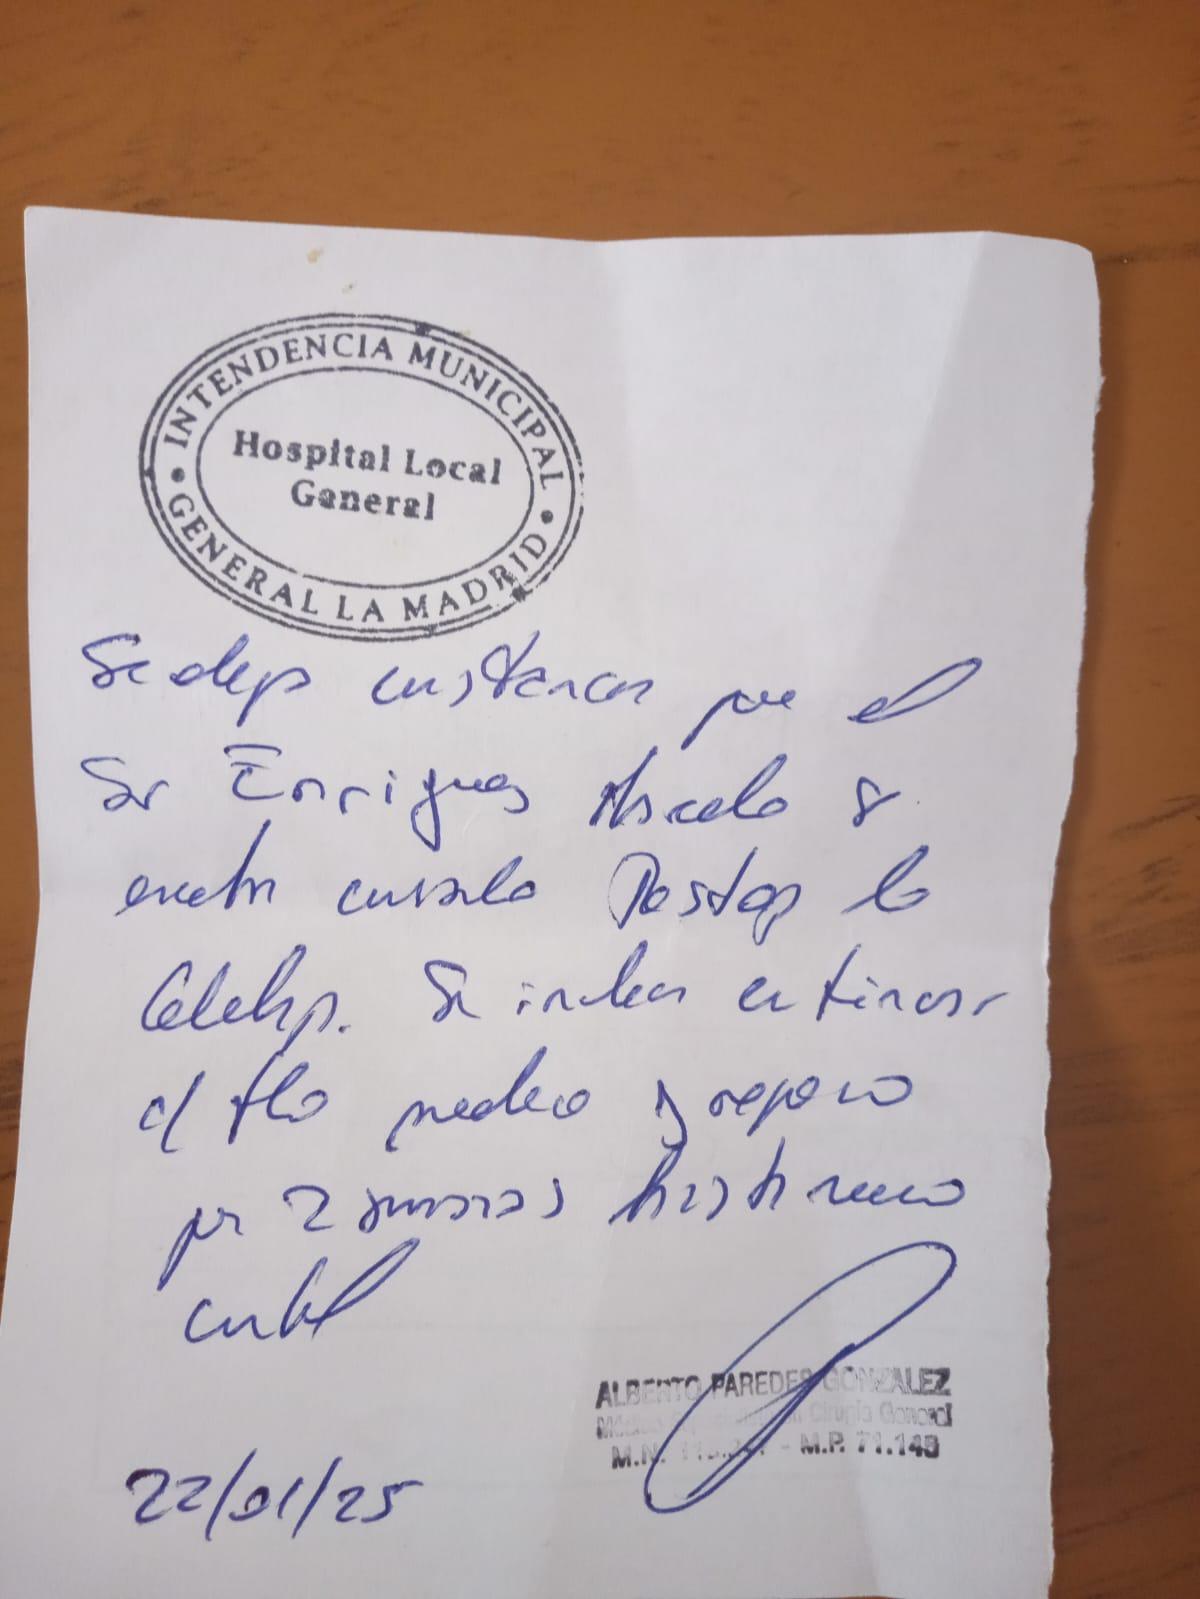 INTENDENCIA MUNICIPAL
Hospital Local
General
GENERAL LA MADRID
Se deja constancia que el
Sr Enriquez Marcelo se
encuentra cursando Postop
Se indica continuar
c/ tto medico y reposo
por 2 semanas hasta nuevo
control
ALBERTO PAREDES GONZALEZ
Médico Especialista en Cirugía General
M.N. - M.P. 71.148
22/01/25